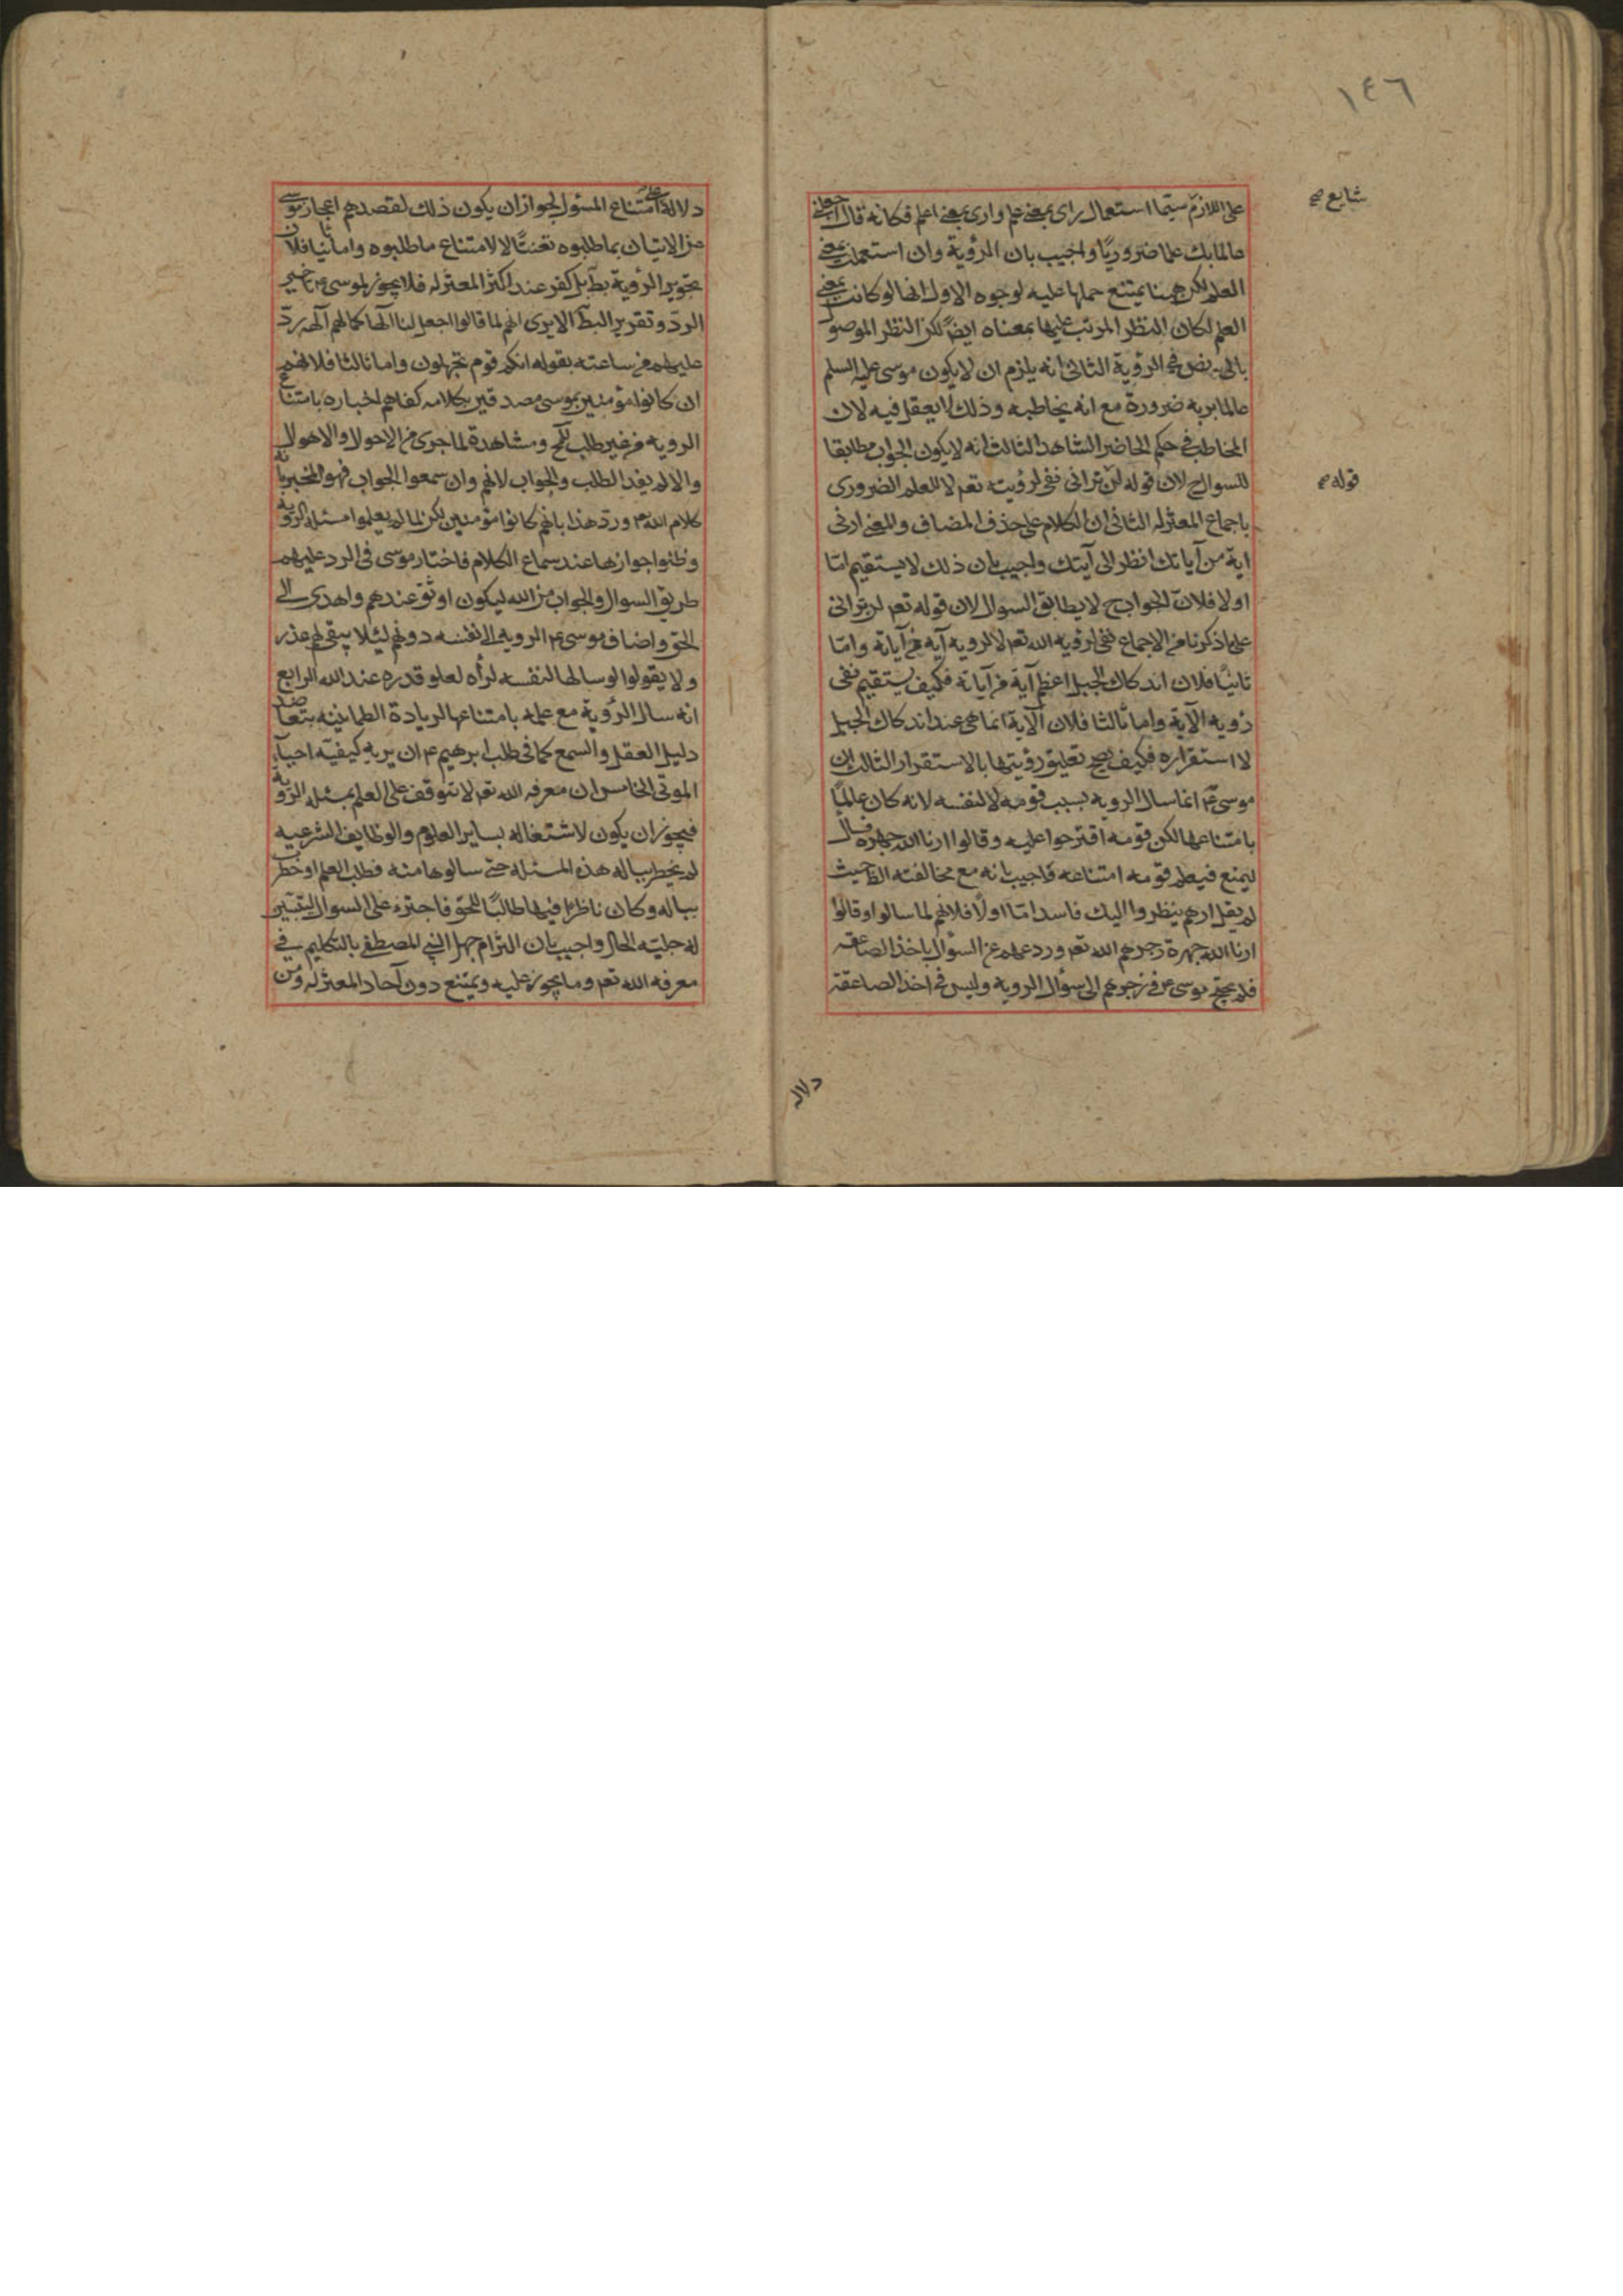 ١٤٦
شايع صح
على اللازم سيما استعمال راى بمعنى علم وارى بمعنى اعلم فكانه قال اجعلنى
عالما بك علما ضروريا واجيب بان الرؤية وان استعملت بمعنى
العلم لكن ههنا يمتنع حملها عليه لوجوه الاول انها لو كانت بمعنى
العلم لكان النظر المرتب عليها بمعناه ايضا لكن النظر الموصول
بالى نص فى الرؤية الثانى انه يلزم ان لا يكون موسى عليه السلم
عالما بربه ضرورة مع انه يخاطبه وذلك لا يعقل فيه لان
المخاطب فى حكم الحاضر الشاهد الثالث انه لا يكون الجواب مطابقا
قوله صح
للسوال ح لان قوله لن ترانى نفى لرؤيته تعم لا للعلم الضرورى
باجماع المعتزله الثانى ان الكلام على حذف المضاف والمعنى ارنى
اية من آياتك انظر الى آيتك واجيب بان ذلك لا يستقيم اما
اولا فلان الجواب ح لا يطابق السوال لان قوله تعم لن ترانى
على ما ذكرنا من الاجماع نفى لرؤيه الله تعم لا لرويه آية من آياته واما
ثانيا فلان اندكاك الجبل اعظم آية من آياته فكيف يستقيم نفى
رؤيه الآية واما ثالثا فلان الآية انما هى عند اندكاك الجبل
لا استقراره فكيف يصح تعليق رؤيتها بالاستقرار الثالث ان
موسى عم انما سال الرويه بسبب قومه لا لنفسه لانه كان عالما
بامتناعها لكن قومه اقترحوا عليه وقالوا ارنا الله جهرة فسال
ليمنع فيعلم قومه امتناعه فاجيب بانه مع مخالفته الظ حيث
لم يقل ارهم ينظروا اليك فاسد اما اولا فلانهم لما سالوا وقالوا
ارنا الله جهرة زجرهم الله تعم وردعهم عن السؤال باخذ الصاعقه
فلم يحتج موسى عم فى زجرهم الى سؤال الرويه وليس فى اخذ الصاعقة
دلاله
دلالة على امتناع المسئول لجواز ان يكون ذلك لقصدهم اعجاز موسى
عن الاتيان بما طلبوه تعنتا لا لامتناع ما طلبوه واما ثانيا فلان
تجويز الرؤية بط بل كفر عند اكثر المعتزله فلا يجوز لموسى عم تاخير
الرد وتقرير البط الا يرى انهم لما قالوا اجعل لنا الها كما لهم آلهه رد
عليهم من ساعته بقوله انكم قوم تجهلون واما ثالثا فلانهم
ان كانوا مؤمنين بموسى مصدقين بكلامه كفاهم اخباره بامتناع
الرويه من غير طلب للمح ومشاهدة لما جرى من الاحوال والاهوال
والا لم يفد الطلب والجواب لانهم وان سمعوا الجواب فهو المخبر بانه
كلام الله عم ورد هذا بانهم كانوا مؤمنين لكن لما لم يعلموا مسئله الروية
وظنوا جوازها عند سماع الكلام فاختار موسى فى الرد عليهم
طريق السوال والجواب من الله ليكون اوثق عندهم واهدى الى
الحق واضاف موسى عم الرويه الى نفسه دونهم لئلا يبقى لهم عذر
ولا يقولوا لو سالها لنفسه لرأه لعلو قدره عند الله الرابع
انه سال الرؤية مع علمه بامتناعها لزيادة الطمانينه بتعاضد
دليل العقل والسمع كما فى طلب ابرهيم عم ان يريه كيفيه احياء
الموتى الخامس ان معرفه الله تعم لا تتوقف على العلم بمسئله الروية
فيجوز ان يكون لاشتغاله بساير العلوم والوظايف الشرعيه
لم يخطر بباله هذه المسئله حتى سالوها منه فطلب العلم او خطر
بباله وكان ناظرا فيها طالبا للحق فاجترء على السوال ليتبين
له جليه الحال واجيب بان التزام جهل النبى المصطفى بالتكليم فى
معرفه الله تعم وما يجوز عليه ويمتنع دون آحاد المعتزله ومن